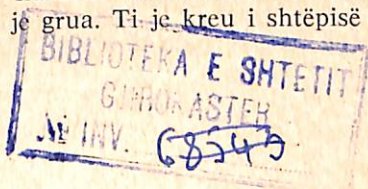 je grua. Ti je kreu i shtëpisë
BIBLIOTEKA E SHTETIT
GJIROKASTER
№ INV. 68249